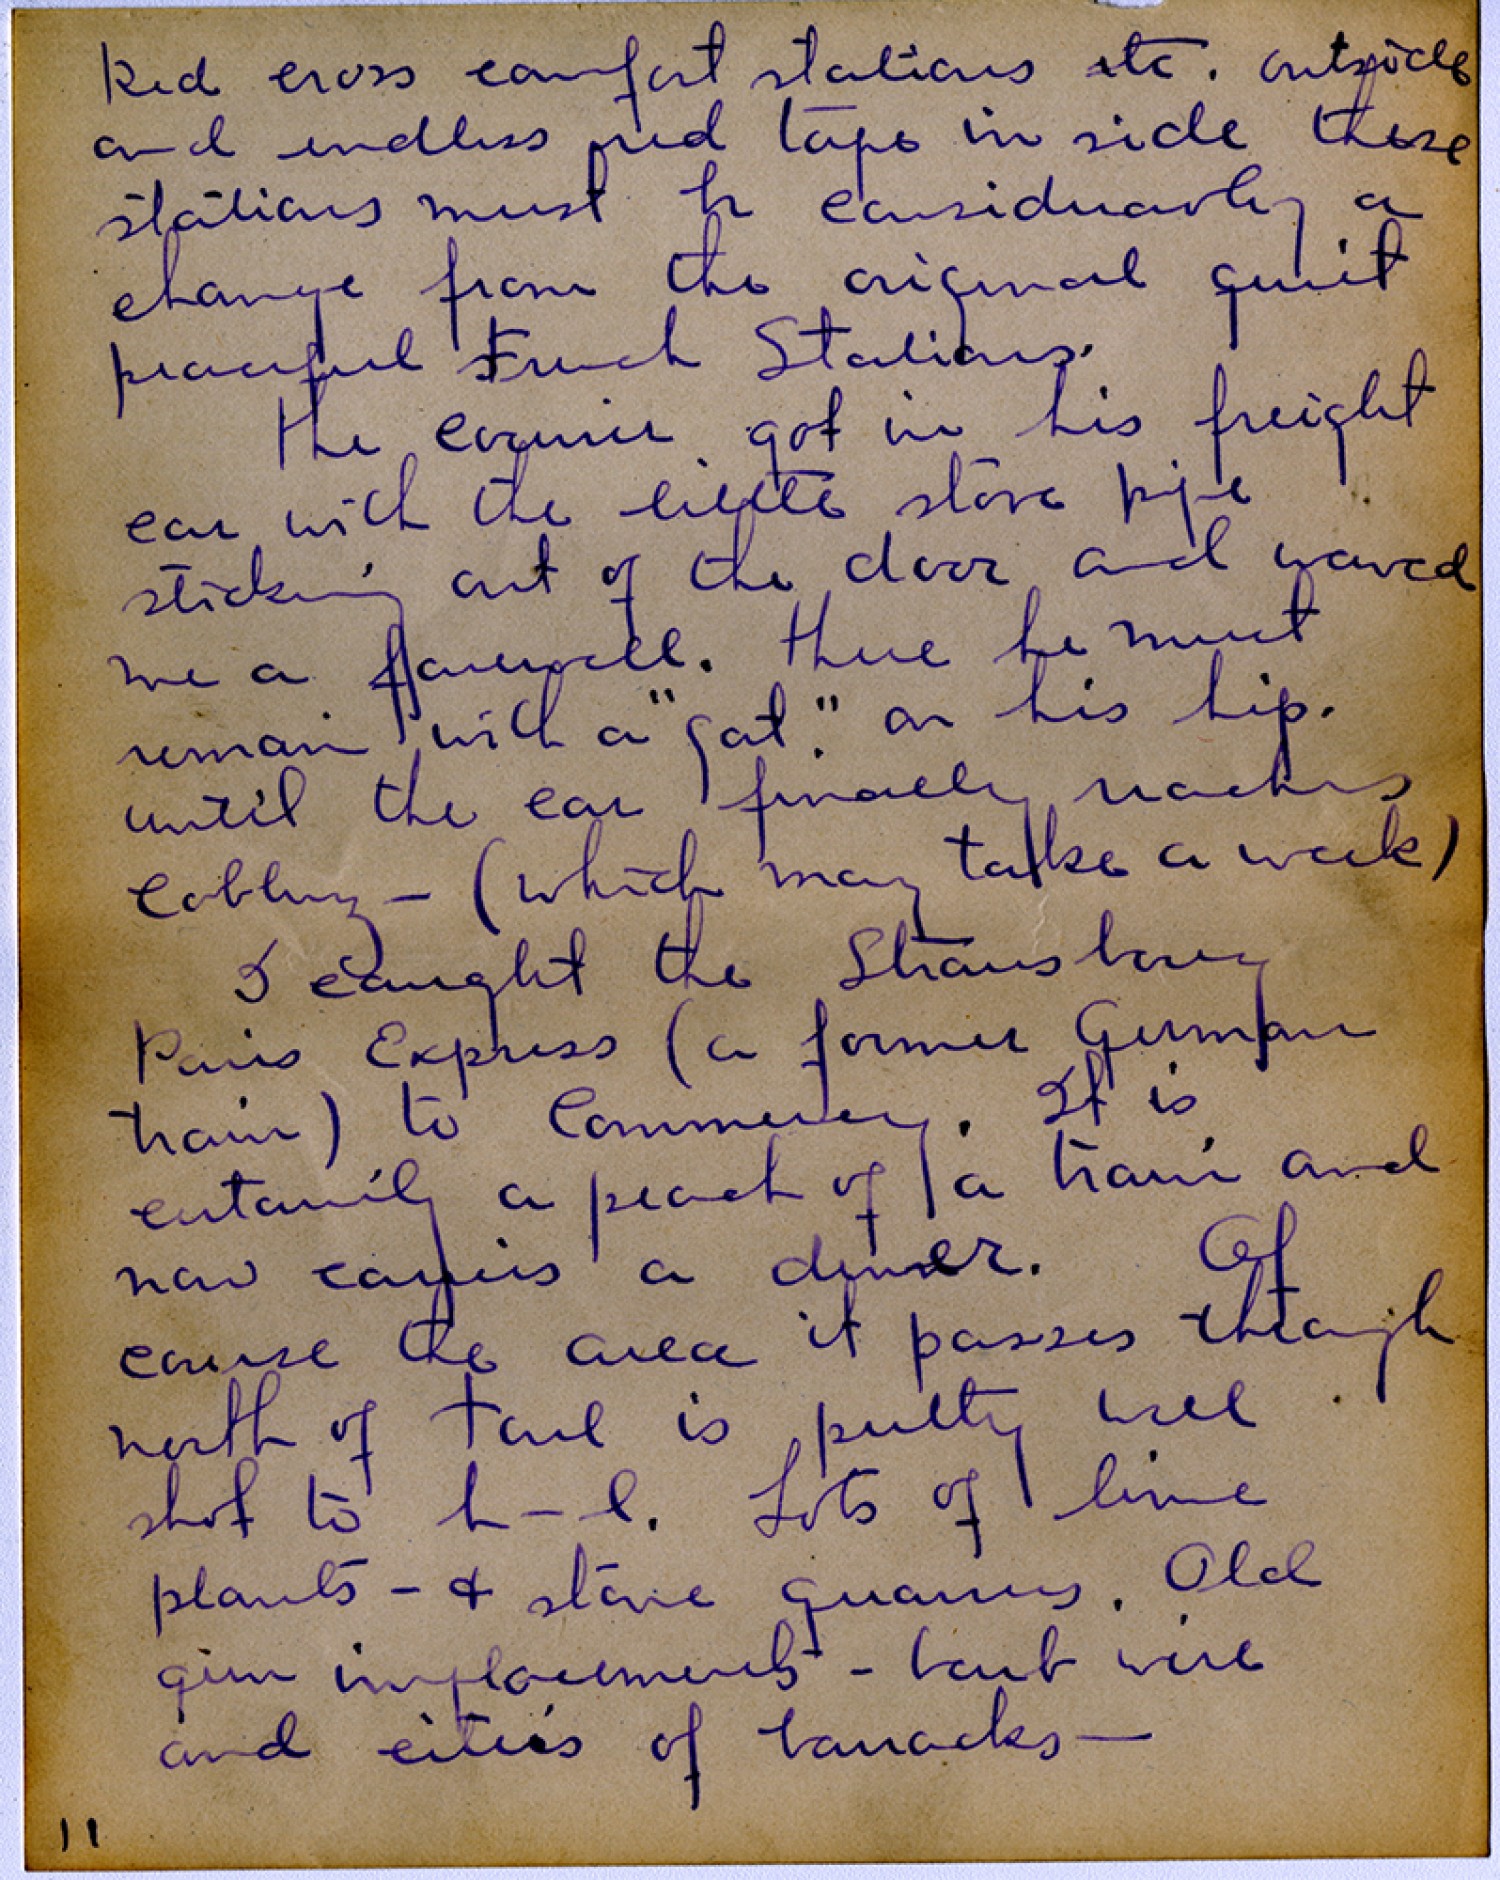 Red cross comfort stations etc. outside
and endless red tape in side these
stations must be considerably a
change from the original quiet
peaceful French Stations.
The courier got in his freight
car with the little stove pipe
sticking out of the door and waved
me a farewell. There he must
remain with a "gat." on his hip.
until the car finally reaches
Coblenz – (which may take a week)
I caught the Strausbourg
Paris Express (a former German
train) to Commercy. It is
certainly a peach of a train and
now carries a diner. Of
course the area it passes through
north of Toul is pretty well
shot to h–l. Lots of lime
plants – & stone quarries. Old
gun implacements – barb wire
and cities of barracks —
11